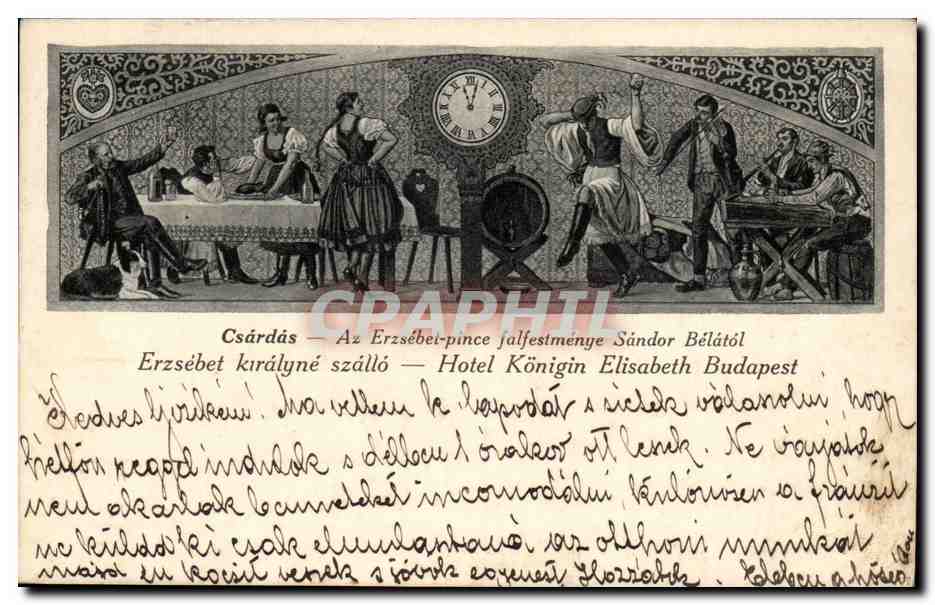 CPAPHIL
Csárdás — Az Erzsébet-pince falfestménye Sándor Bélától
Erzsébet királyné szálló — Hotel Königin Elisabeth Budapest
Kedves ! Ma vettem k. lapodat s sietek válaszolni, hogy
hétfőn reggel indulok s délben 1 órakor ott leszek. Ne várjatok
nem akarlak benneteket incomodálni, különösen a
ne küldd ki csak elmulasztaná az otthoni munkát
majd én kocsit veszek s jövök egyenest Hozzátok.